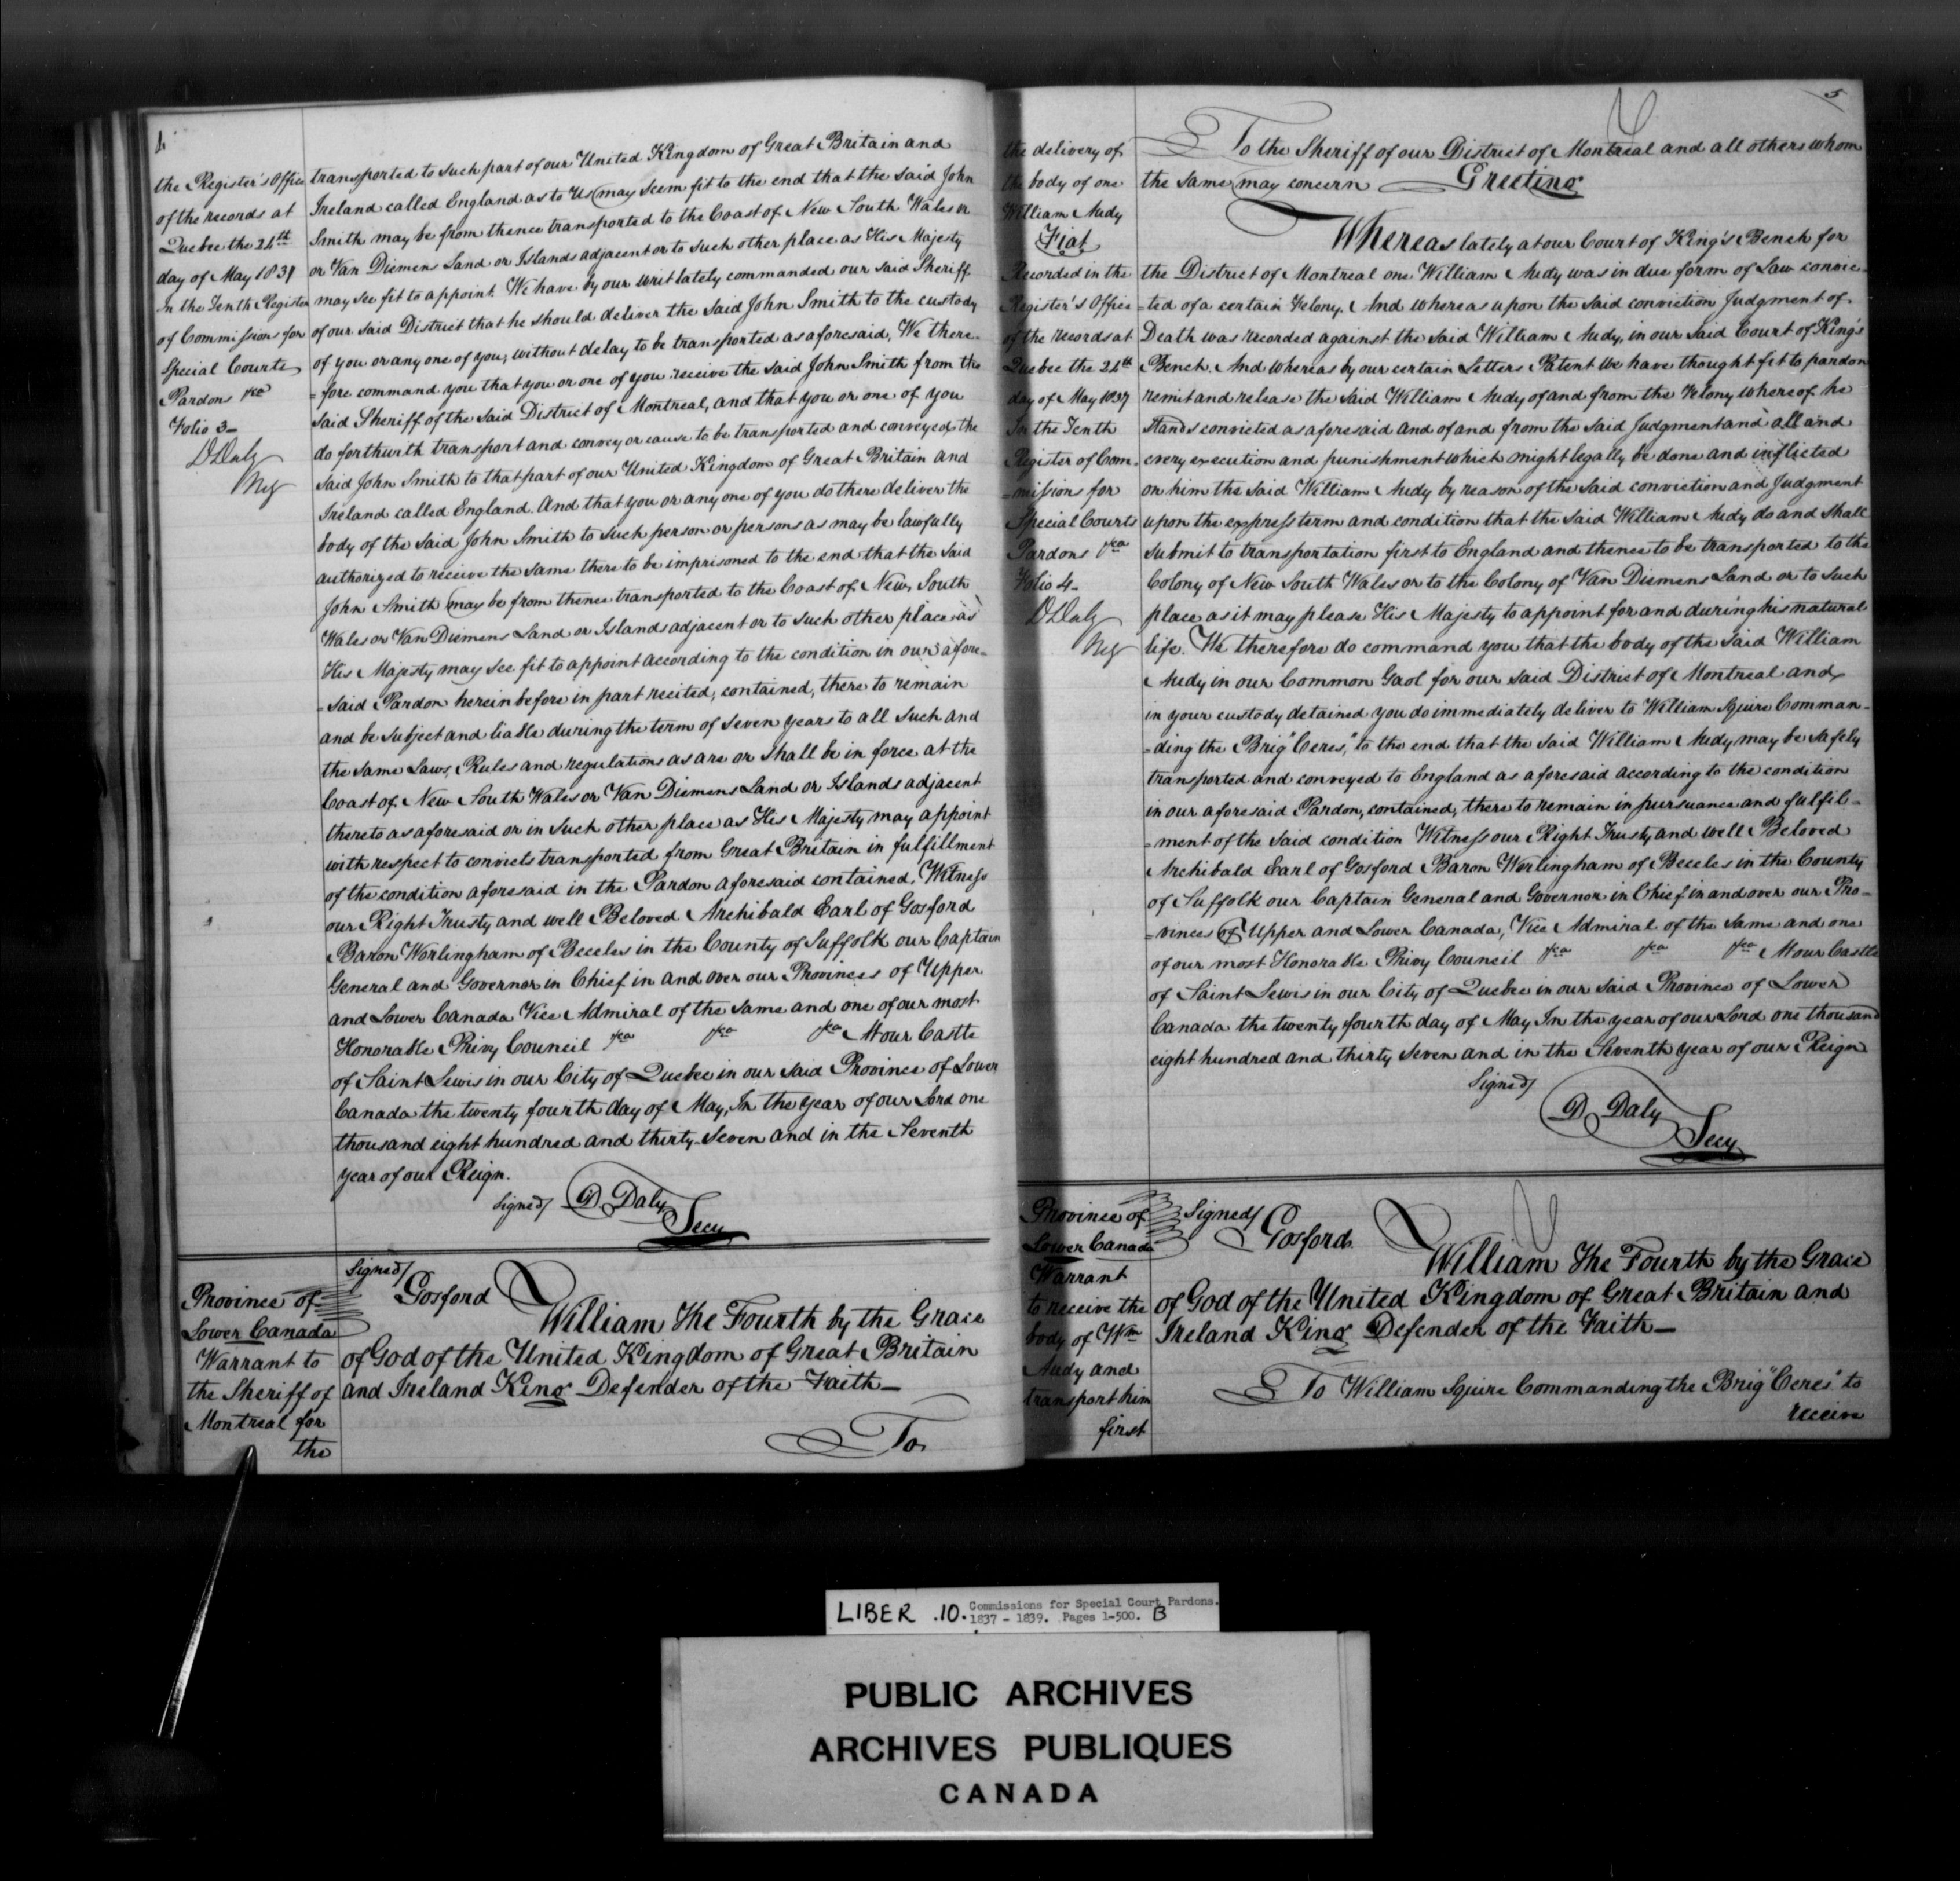 4
the Register's Office
of the records at
Quebec the 24th
day of May 1837
In the Tenth Register
of Commissions for
Special Courts
Pardons &ca
Folio 3_
D Daly
Reg
transported to such part of our United Kingdom of Great Britain and
Ireland called England as to Us may seem fit to the end that the said John
Smith may be from thence transported to the Coast of New South Wales or
or Van Diemens Land or Islands adjacent or to such other place as His Majesty
may see fit to appoint. We have by our writ lately commanded our said Sheriff
of our said District that he should deliver the said John Smith to the custody
of you or any one of you, without delay to be transported as aforesaid, We there-
=fore command you that you or one of you receive the said John Smith from the
said Sheriff of the said District of Montreal, and that you or one of you
do forthwith transport and convey or cause to be transported and conveyed the
said John Smith to that part of our United Kingdom of Great Britain and
Ireland called England. And that you or any one of you do there deliver the
body of the said John Smith to such person or persons as may be lawfully
authorized to receive the same there to be imprisoned to the end that the said
John Smith may be from thence transported to the Coast of New South
Wales or Van Diemens Land or Islands adjacent or to such other place as
His Majesty may see fit to appoint according to the condition in our afore=
=said Pardon herein before in part recited, contained, there to remain
and be subject and liable during the term of seven years to all such and
the same Laws, Rules and regulations as are or shall be in force at the
Coast of New South Wales or Van Diemens Land or Islands adjacent
thereto as aforesaid or in such other place as His Majesty may appoint
with respect to convicts transported from Great Britain in fulfillment
of the condition aforesaid in the Pardon aforesaid contained. Witness
our Right Trusty and well Beloved Archibald Earl of Gosford
Baron Worlingham of Beccles in the County of Suffolk our Captain
General and Governor in Chief in and over our Provinces of Upper
and Lower Canada Vice Admiral of the same and one of our most
Honorable Privy Council &ca &ca &ca At our Castle
of Saint Lewis in our City of Quebec in our said Province of Lower
Canada the twenty fourth day of May, In the year of our Lord one
thousand eight hundred and thirty Seven and in the Seventh
year of our Reign.
Signed/ D. Daly
Secy
Province of
Lower Canada
Warrant to
the Sheriff of
Montreal for
the
Signed/
Gosford
William The Fourth by the Grace
of God of the United Kingdom of Great Britain
and Ireland King Defender of the Faith_
To
5
the delivery of
the body of one
William Audy
Fiat
Recorded in the
Register's Office
of the records at
Quebec the 24th
day of May 1837
In the Tenth
Register of Com.
=missions for
Special Courts
Pardons &ca
Folio 4_
D Daly
Reg
To the Sheriff of our District of Montreal and all others whom
the same may concern Greeting
Whereas lately at our Court of King's Bench for
the District of Montreal one William Audy was in due form of Law convic=
=ted of a certain Felony. And whereas upon the said conviction Judgment of
Death was recorded against the said William Audy, in our said Court of King's
Bench. And whereas by our certain Letters Patent We have thought fit to pardon
remit and release the said William Audy of and from the Felony whereof he
stands convicted as aforesaid and of and from the said Judgment and all and
every execution and punishment which might legally be done and inflicted
on him the said William Audy by reason of the said conviction and Judgment
upon the express term and condition that the said William Audy do and shall
submit to transportation first to England and thence to be transported to the
Colony of New South Wales or to the Colony of Van Diemens Land or to such
place as it may please His Majesty to appoint for and during his natural
life. We therefore do command you that the body of the said William
Audy in our Common Gaol for our said District of Montreal and
in your custody detained you do immediately deliver to William Squire Comman=
=ding the Brig "Ceres," to the end that the said William Audy may be safely
transported and conveyed to England as aforesaid according to the condition
in our aforesaid Pardon, contained, there to remain in pursuance and fulfil=
=ment of the said condition Witness our Right Trusty and well Beloved
Archibald Earl of Gosford Baron Worlingham of Beccles in the County
of Suffolk our Captain General and Governor in Chief in and over our Pro=
=vinces of Upper and Lower Canada, Vice Admiral of the same and one
of our most Honorable Privy Council &ca &ca &ca At our Castle
of Saint Lewis in our City of Quebec in our said Province of Lower
Canada the twenty fourth day of May In the year of our Lord one thousand
eight hundred and thirty seven and in the Seventh year of our Reign
Signed/
D. Daly
Secy
Province of
Lower Canada
Warrant
to receive the
body of Wm
Audy and
transport him
first
Signed/
Gosford
William The Fourth by the Grace
of God of the United Kingdom of Great Britain and
Ireland King Defender of the Faith_
To William Squire Commanding the Brig "Ceres" to
receive
LIBER .10. Commissions for Special Court Pardons.
1837 - 1839. Pages 1-500. B
PUBLIC ARCHIVES
ARCHIVES PUBLIQUES
CANADA